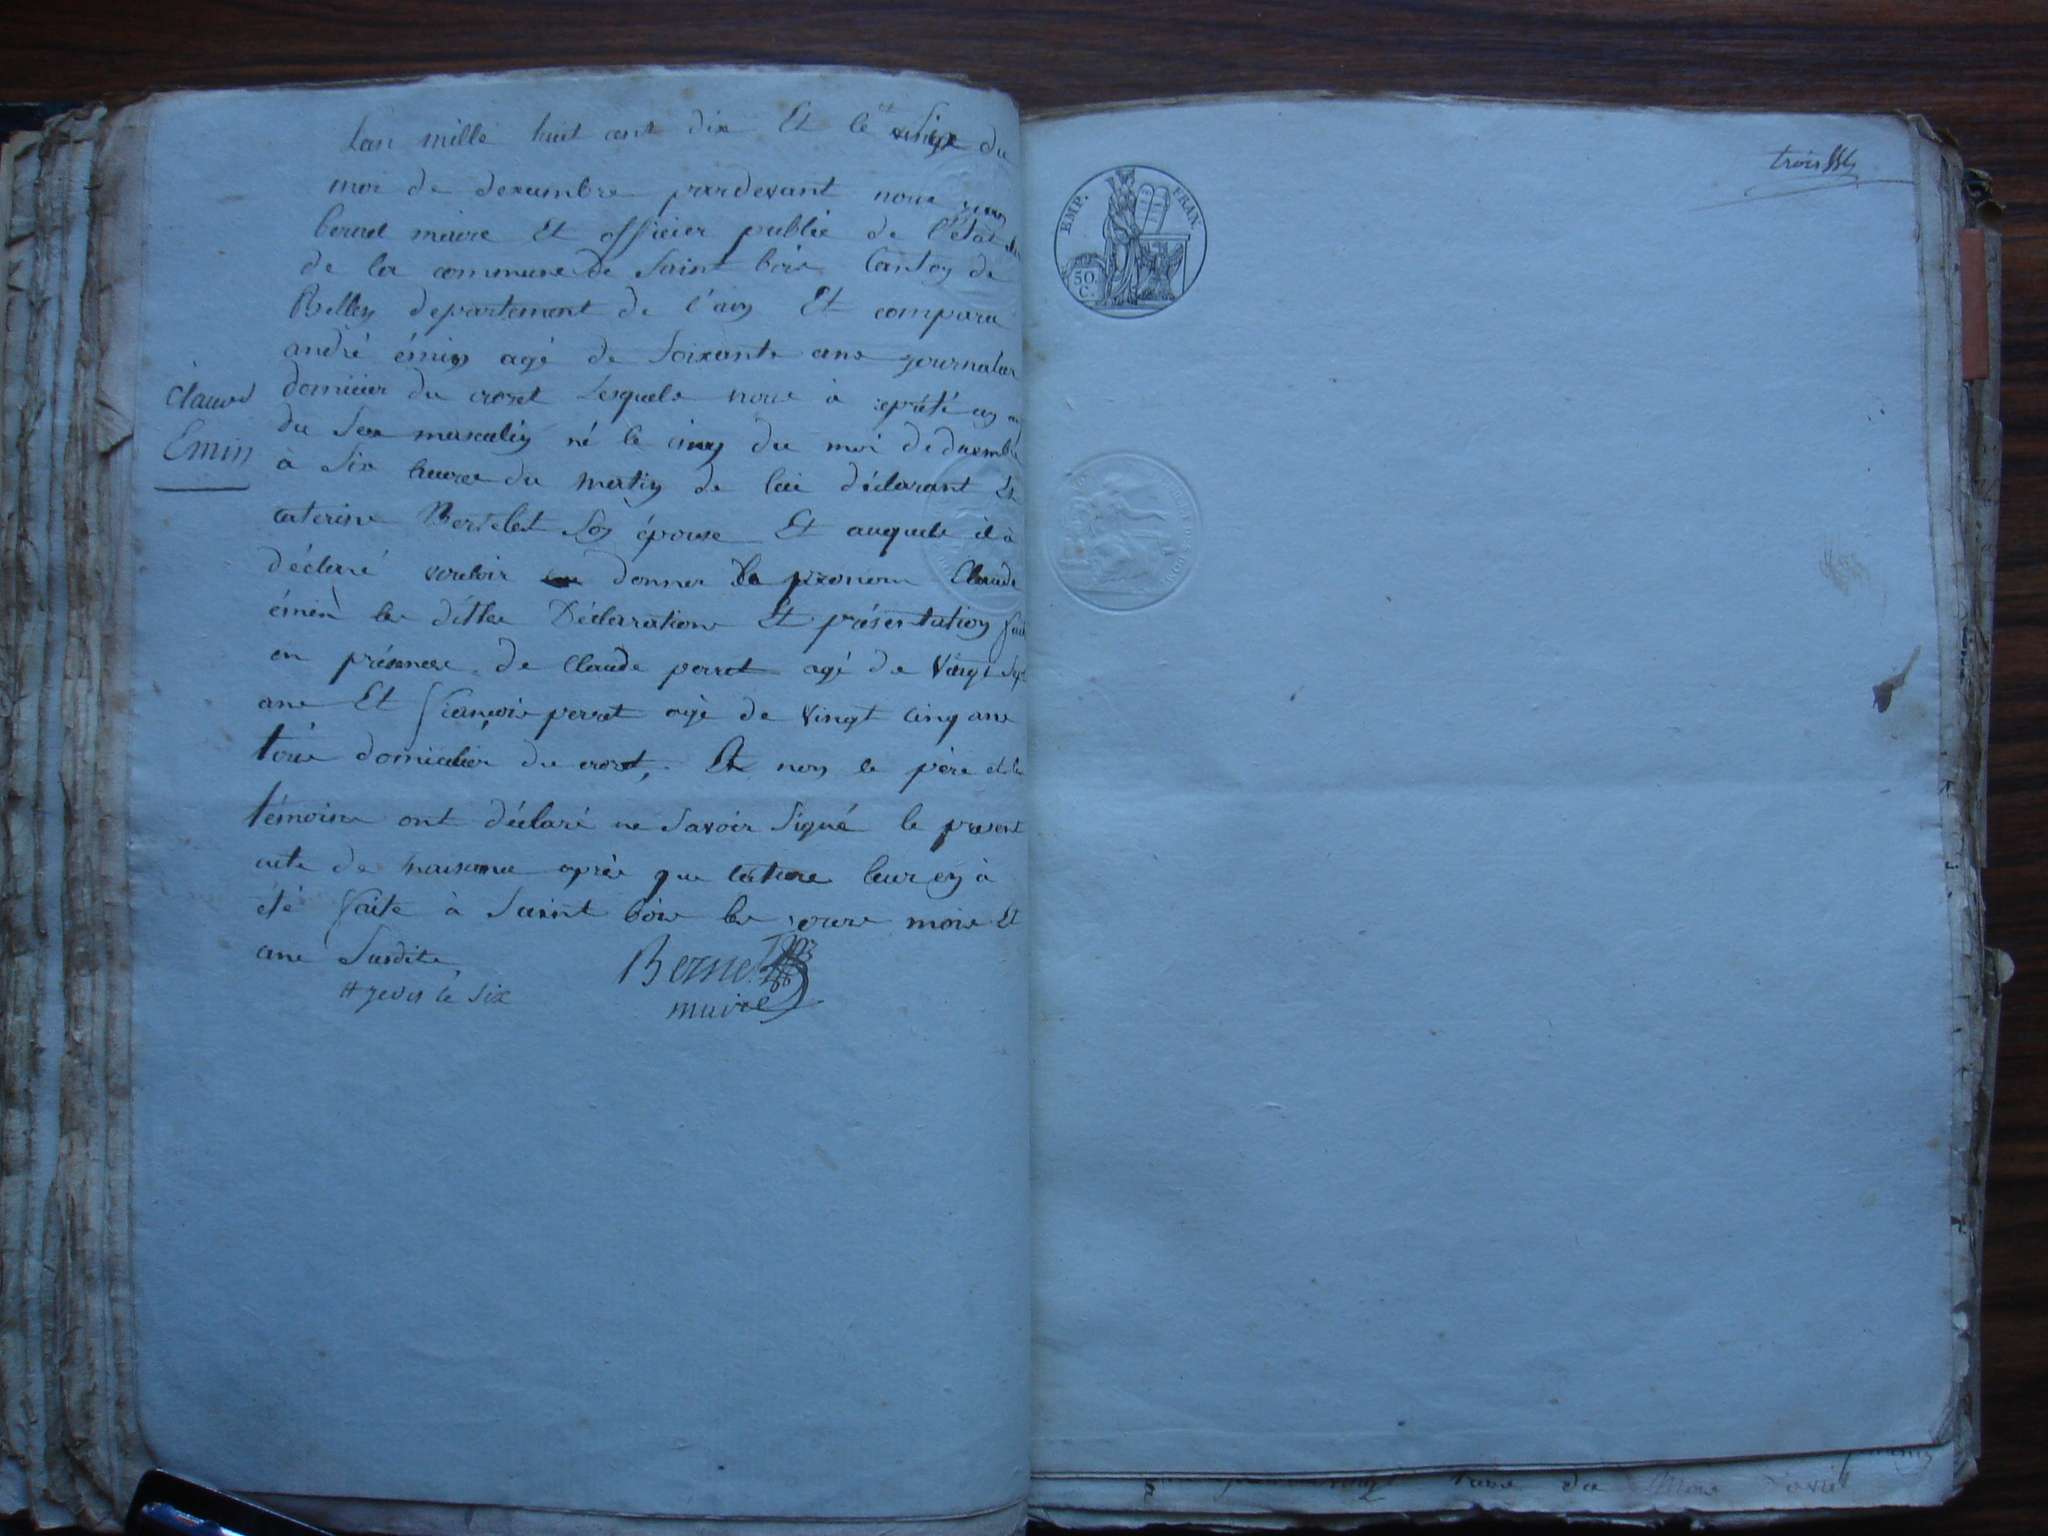 Lan mille huit cent dix Et le six du
moi de decembre pardevant nous
bernet maire Et officier public de l'état
de la commune de Saint bois Canton de
Belley departement de l'ain Et comparu
andré émin agé de Soixante ans journalier
domicier du crozet Lesquels nous à
du Sex masculin né le cinq du moi de
à Six heures du matin de lui déclarant Et
caterine Bertelet Son épouse Et auquele il à
déclaré vouloir donner le prenom Claude
émin les dittes Déclarations Et présentation
en présence de Claude perret agé de Vingt Sept
ans Et françois perret agé de Vingt Cinq ans
tous domicilier du crozet, Et non le père et les
témoins ont déclaré ne Savoir Signé le present
acte de naisance après que lecture leur en à
été faite à Saint bois les jours mois Et
ans Susdits
# le Six
Bernet
maire
Claude
Emin
EMP. FRAN.
50.
C.